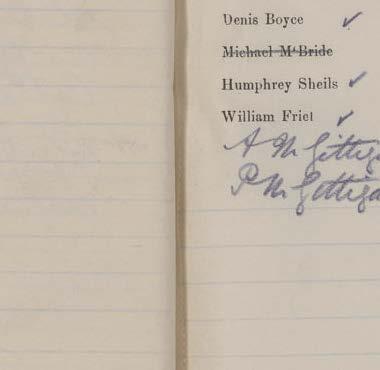 Denis Boyce ✓
Michael M'Bride
Humphrey Sheils ✓
William Friel ✓
A McGettiga
P McGettiga